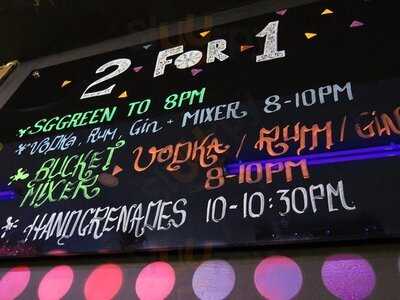 2 FOR 1
* SGGREEN TO 8PM
* VODKA, RUM, Gin + MIXER 8-10PM
* BUCKET VODKA / RUM / GIN
MIXER 8-10PM
* HANDGRENADES 10-10:30PM